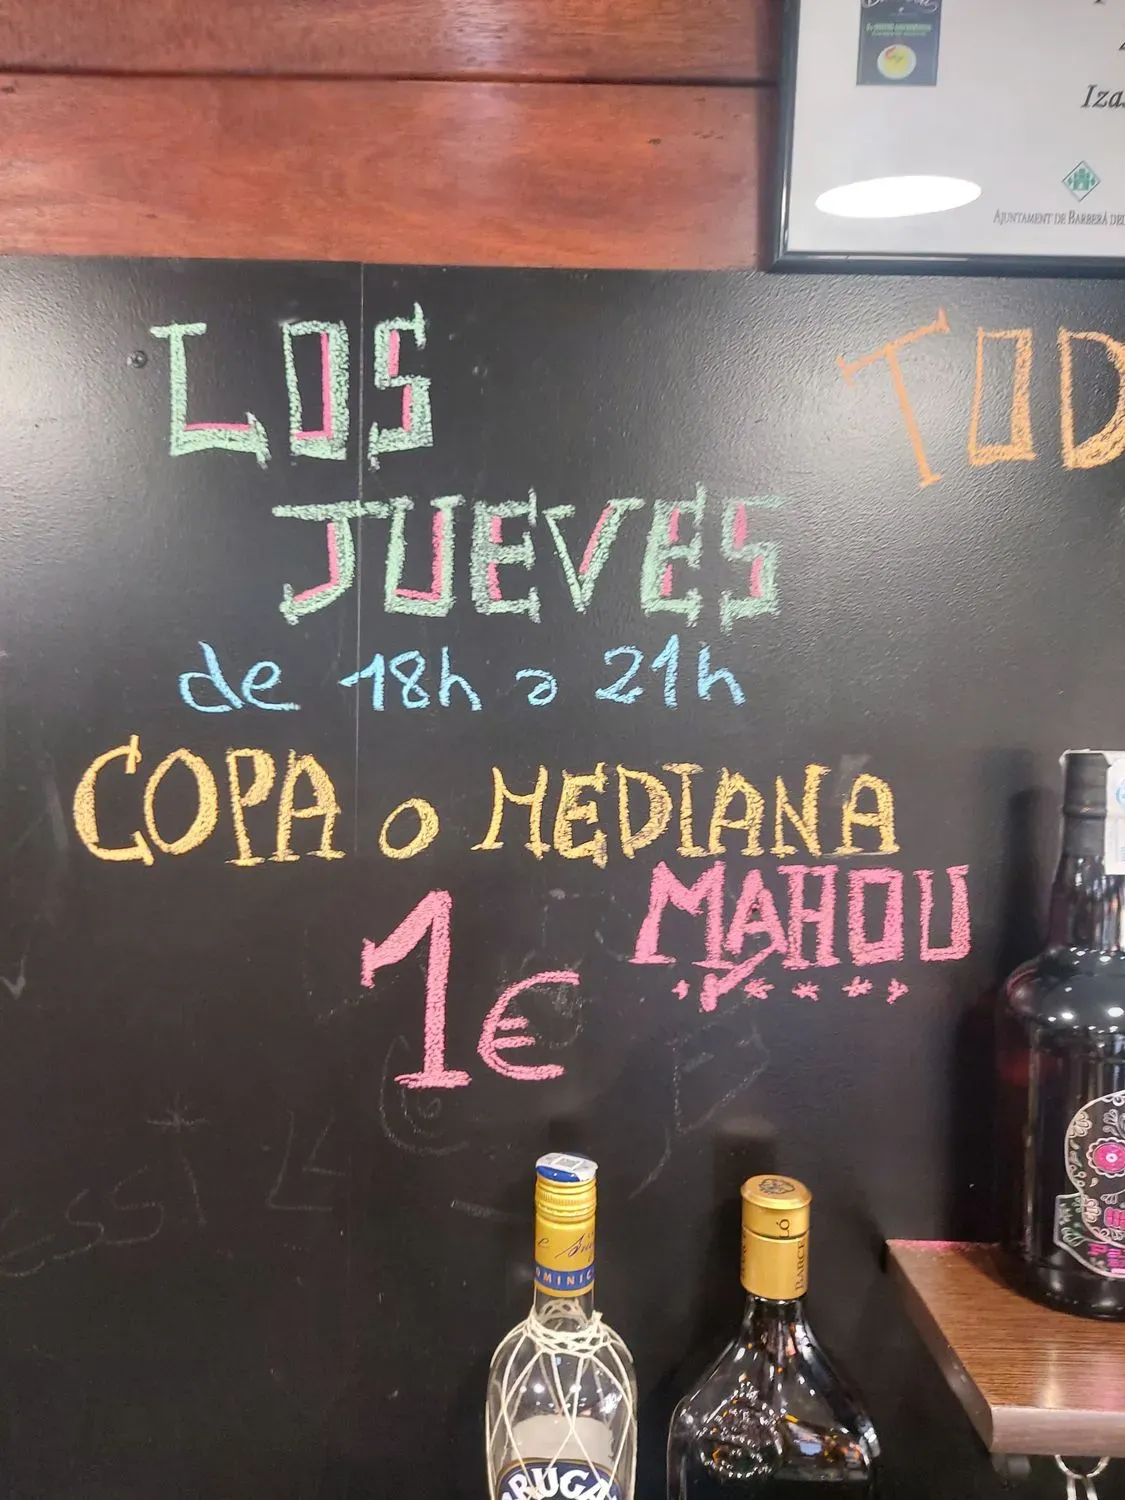 Iza
AJUNTAMENT DE BARBERÀ DEL
LOS
JUEVES
de 18h a 21h
COPA o MEDIANA
MAHOU
1€
TOD
DOMINIC
BRUGA
BARCELÓ